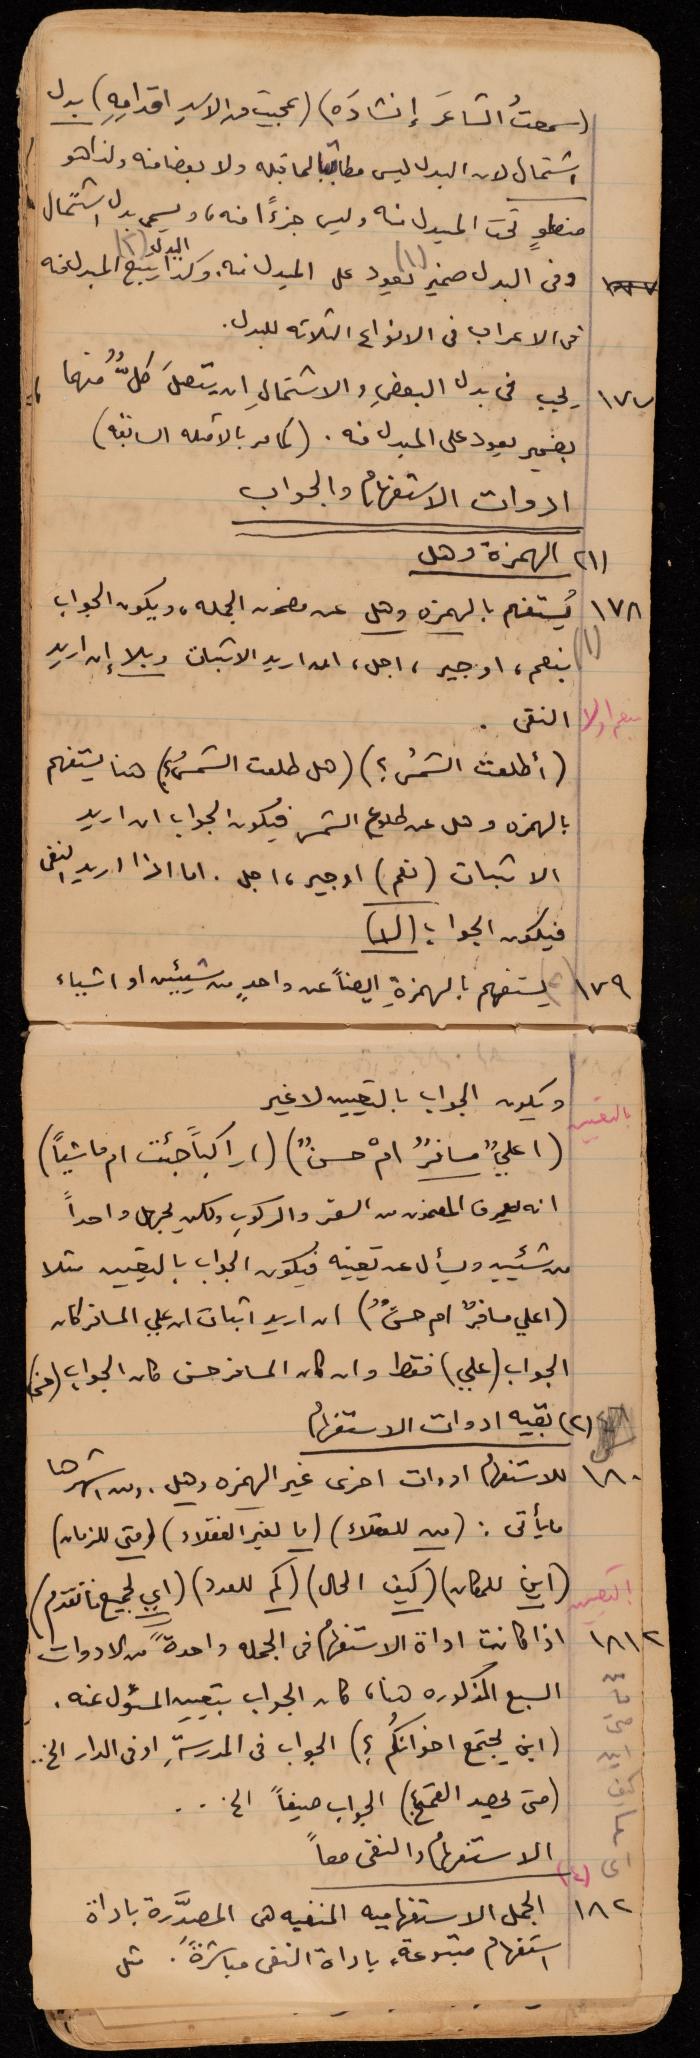 (سمعتُ الشاعرَ إنشادَه) (عجبت من الاسدِ اقدامِهِ) بدل
اشتمال لان البدل ليس مطابقا لما قبله ولا بعضا منه ولذا هو
منطوٍ تحت المبدل منه وليس جزءًا منه، ويسمى بدل اشتمال
وفى البدل ضمير (١) يعود على المبدل منه. وكذا يتبع البدل (٢) المبدل منه
فى الاعراب فى الانواع الثلاثه للبدل.
١٧٧ يجب فى بدل البعضِ والاشتمالِ ان يتصلَ كلٌّ منهما
بضمير يعود على المبدل منه. (كما مر بالأمثله السابقة)
ادوات الاستفهام والجواب
(١) الهمزة وهل
١٧٨ يُستفهم بالهمزه وهل عن مضمون الجمله، ويكون الجواب
(١) بنعم، او جير، اجل، ان اريد الاثبات وبلا إن اريد
النفى.
بنعم اولا
(أطلعت الشمسُ؟) (هل طلعت الشمسُ؟) هنا يستفهم
بالهمزه وهل عن طلوع الشمس فيكون الجواب ان اريد
الاثبات (نعم) او جير، اجل. اما اذا اريد النفى
فيكون الجواب (لا)
١٧٩ يستفهم بالهمزةِ ايضاً عن واحدٍ من شيئين او اشياء
ويكون الجواب بالتعيين لا غير
بالتعيين
(اعليٌ مسافرٌ امْ حسنٌ) (اراكباً جئت ام ماشياً)
انه يعرف المضمون من السفر والركوبِ ولكن يجهل واحداً
من شيئين ويسأل عن تعيينه فيكون الجواب بالتعيين مثلا
(اعلي مسافرٌ ام حسنٌ) ان اريد اثبات ان علي المسافر كان
الجواب (علي) فقط وان كان المسافر حسن كان الجواب (حسن)
(٢) بقيه ادوات الاستفهام
١٨٠ للاستفهام ادوات اخرى غير الهمزه وهل. ومن اشهرها
مايأتى: (من للعقلاء) (ما لغير العقلاء) (متى للزمان)
(اين للمكان) (كيف الحال) (كم للعدد) (اي لجميع ما تقدم)
التعيين
١٨١ اذا كانت اداة الاستفهام فى الجمله واحدةً من الادوات
السبع المذكوره هنا، كان الجواب بتعيين المسؤل عنه.
(اين يجتمع اخوانكُم؟) الجواب فى المدرسةِ او فى الدار الخ..
(متى يحصد القمح؟) الجواب صيفاً الخ...
الاستفهام والنفى معاً
١٨٢ الجمل الاستفهاميه المنفيه هى المصدَّرة باداة
استفهام متبوعةٍ باداة النفى مباشرةً. مثل